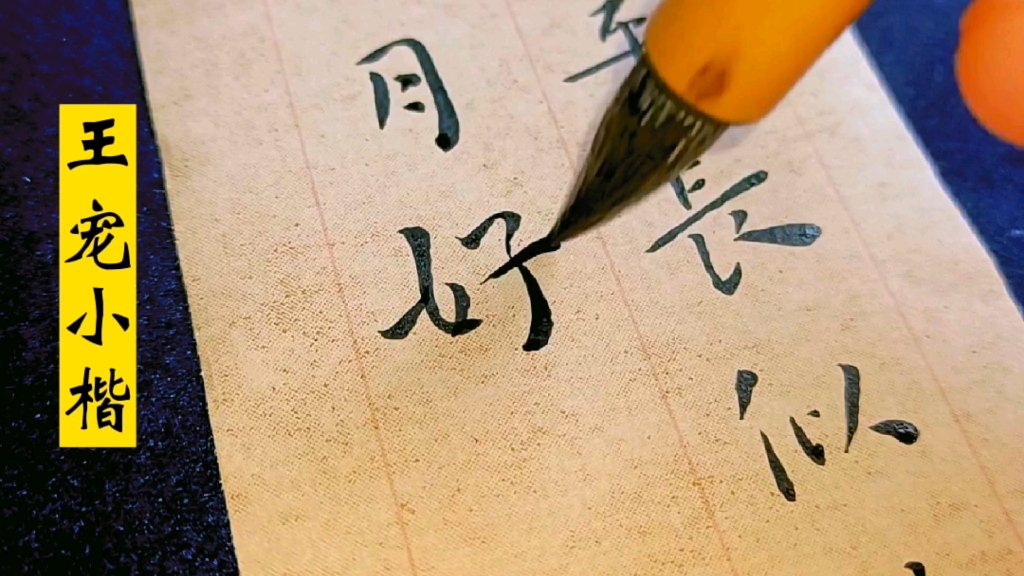 王宠小楷
长似
月好